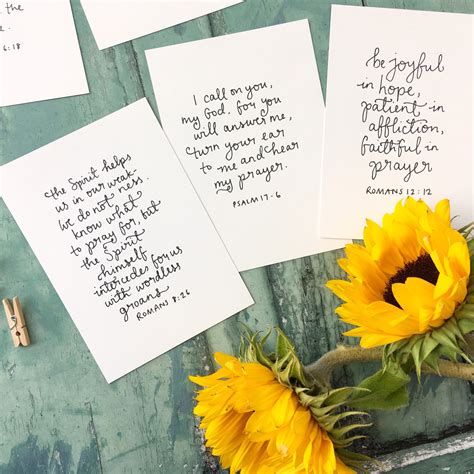 6:18
the Spirit helps
us in our weak-
we do not ness.
know what
to pray for, but
the Spirit
himself
intercedes for us
with wordless
groans
ROMANS 8:26
I call on you,
my God, for you
will answer me,
turn your ear
to me and hear
my prayer.
PSALM 17-6
be joyful
in hope,
patient in
affliction,
faithful in
prayer
ROMANS 12:12